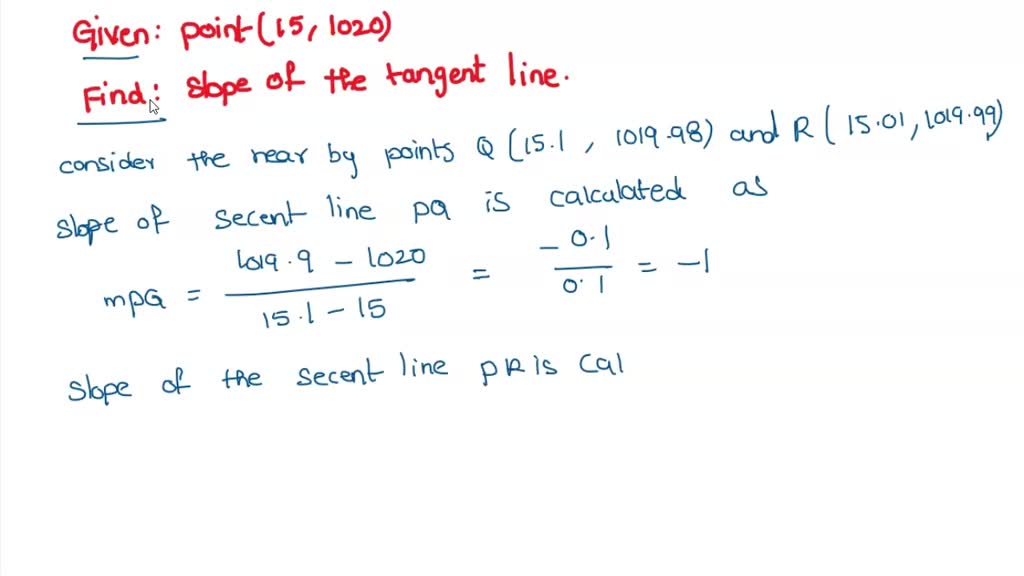 Given: point(15, 1020)
Find: slope of the tangent line.
consider the near by points Q (15.1, 1019.98) and R (15.01, 1019.99)
slope of secent line pQ is calculated as
mpQ = 1019.9 - 1020 / 15.1 - 15 = -0.1 / 0.1 = -1
slope of the secent line pR is cal